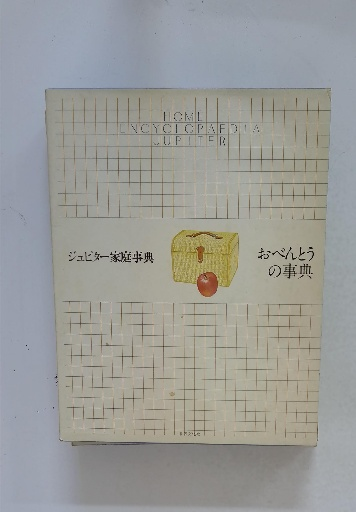 HOME
ENCYCLOPAEDIA
JUPITER
ジュピター家庭事典
おべんとう
の事典